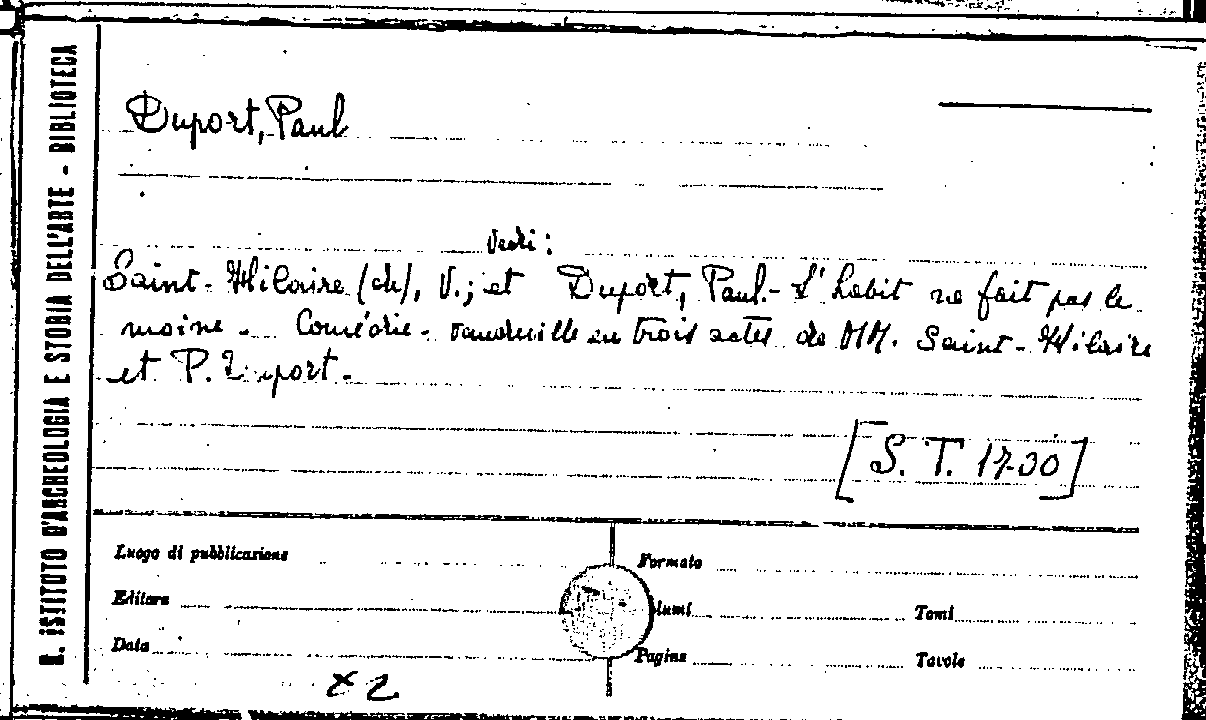 R. ISTITUTO D'ARCHEOLOGIA E STORIA DELL'ARTE - BIBLIOTECA
Duport, Paul
Vedi:
Saint-Hilaire (de), V.; et Duport, Paul.- L'habit ne fait pas le
moine - Comédie-vaudeville en trois actes de MM. Saint-Hilaire
et P. Duport.-
[S. T. 1700]
Luogo di pubblicazione
Formato
Editore
lumi
Tomi
Data
Pagine
Tavole
x 2